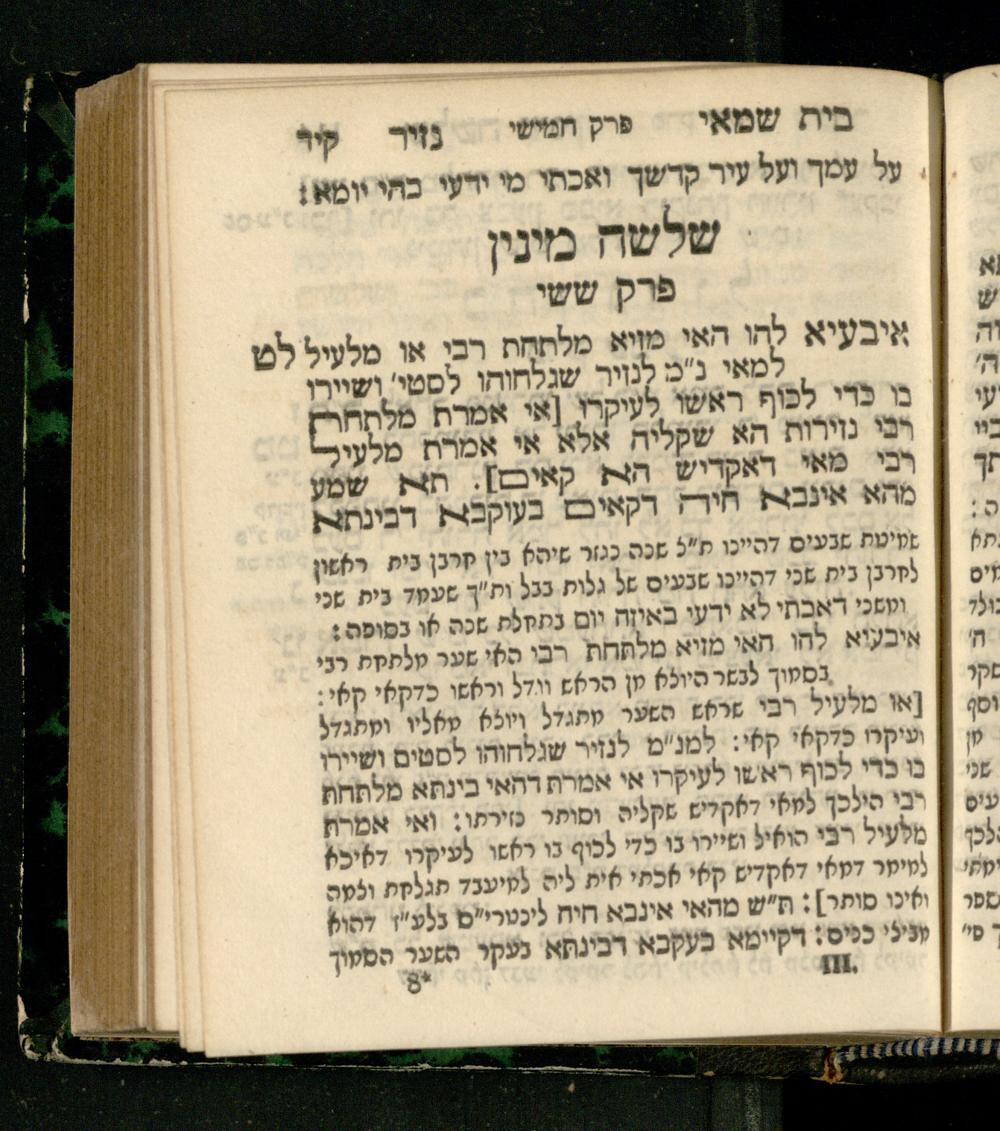 בית שמאי פרק חמישי נזיר קיד
על עמך ועל עיר קדשך ואכתי מי ידעי בהי יומא:
שלשה מינין
פרק ששי
איבעיא להו האי מזיא מלתחת רבי או מלעיל לט
למאי נ"מ לנזיר שגלחוהו לסטי' ושיירו
בו כדי לכוף ראשו לעיקרו [אי אמרת מלתחת
רבי נזירות הא שקליה אלא אי אמרת מלעיל
רבי מאי דאקדיש הא קאים]. תא שמע
מהא אינבא חיה דקאים בעוקבא דבינתא
שמיטת שבעים דהיינו ת"צ שנה נגזר שיהא בין חרבן בית ראשון
לחרבן בית שני דהיינו שבעים של גלות בבל ות"ך שעמד בית שני
ומשני דאכתי לא ידעי באיזה יום בתחלת שנה או בסופה:
איבעיא להו האי מזיא מלתחת רבי האי שער מלתחת רבי
בסמוך לבשר היוצא מן הראש וגדל וראשו כדקאי קאי:
[או מלעיל רבי שראש השער מתגדל ויוצא מאליו ומתגדל
ועיקרו כדקאי קאי: למנ"מ לנזיר שגלחוהו לסטים ושיירו
בו כדי לכוף ראשו לעיקרו אי אמרת דהאי בינתא מלתחת
רבי הילכך למאי דאקדיש שקליה וסותר נזירתו: ואי אמרת
מלעיל רבי הואיל ושיירו בו כדי לכוף בו ראשו לעיקרו דאיכא
למימר דמאי דאקדיש קאי אכתי אית ליה למיעבד תגלחת ולמה
ואינו סותר]: ת"ש מהאי אינבא חיה ליכטרי"ם בלע"ז דהוא
מבילי כנים: דקיימא בעקבא דבינתא בעקר השער הסמוך
III. 8*